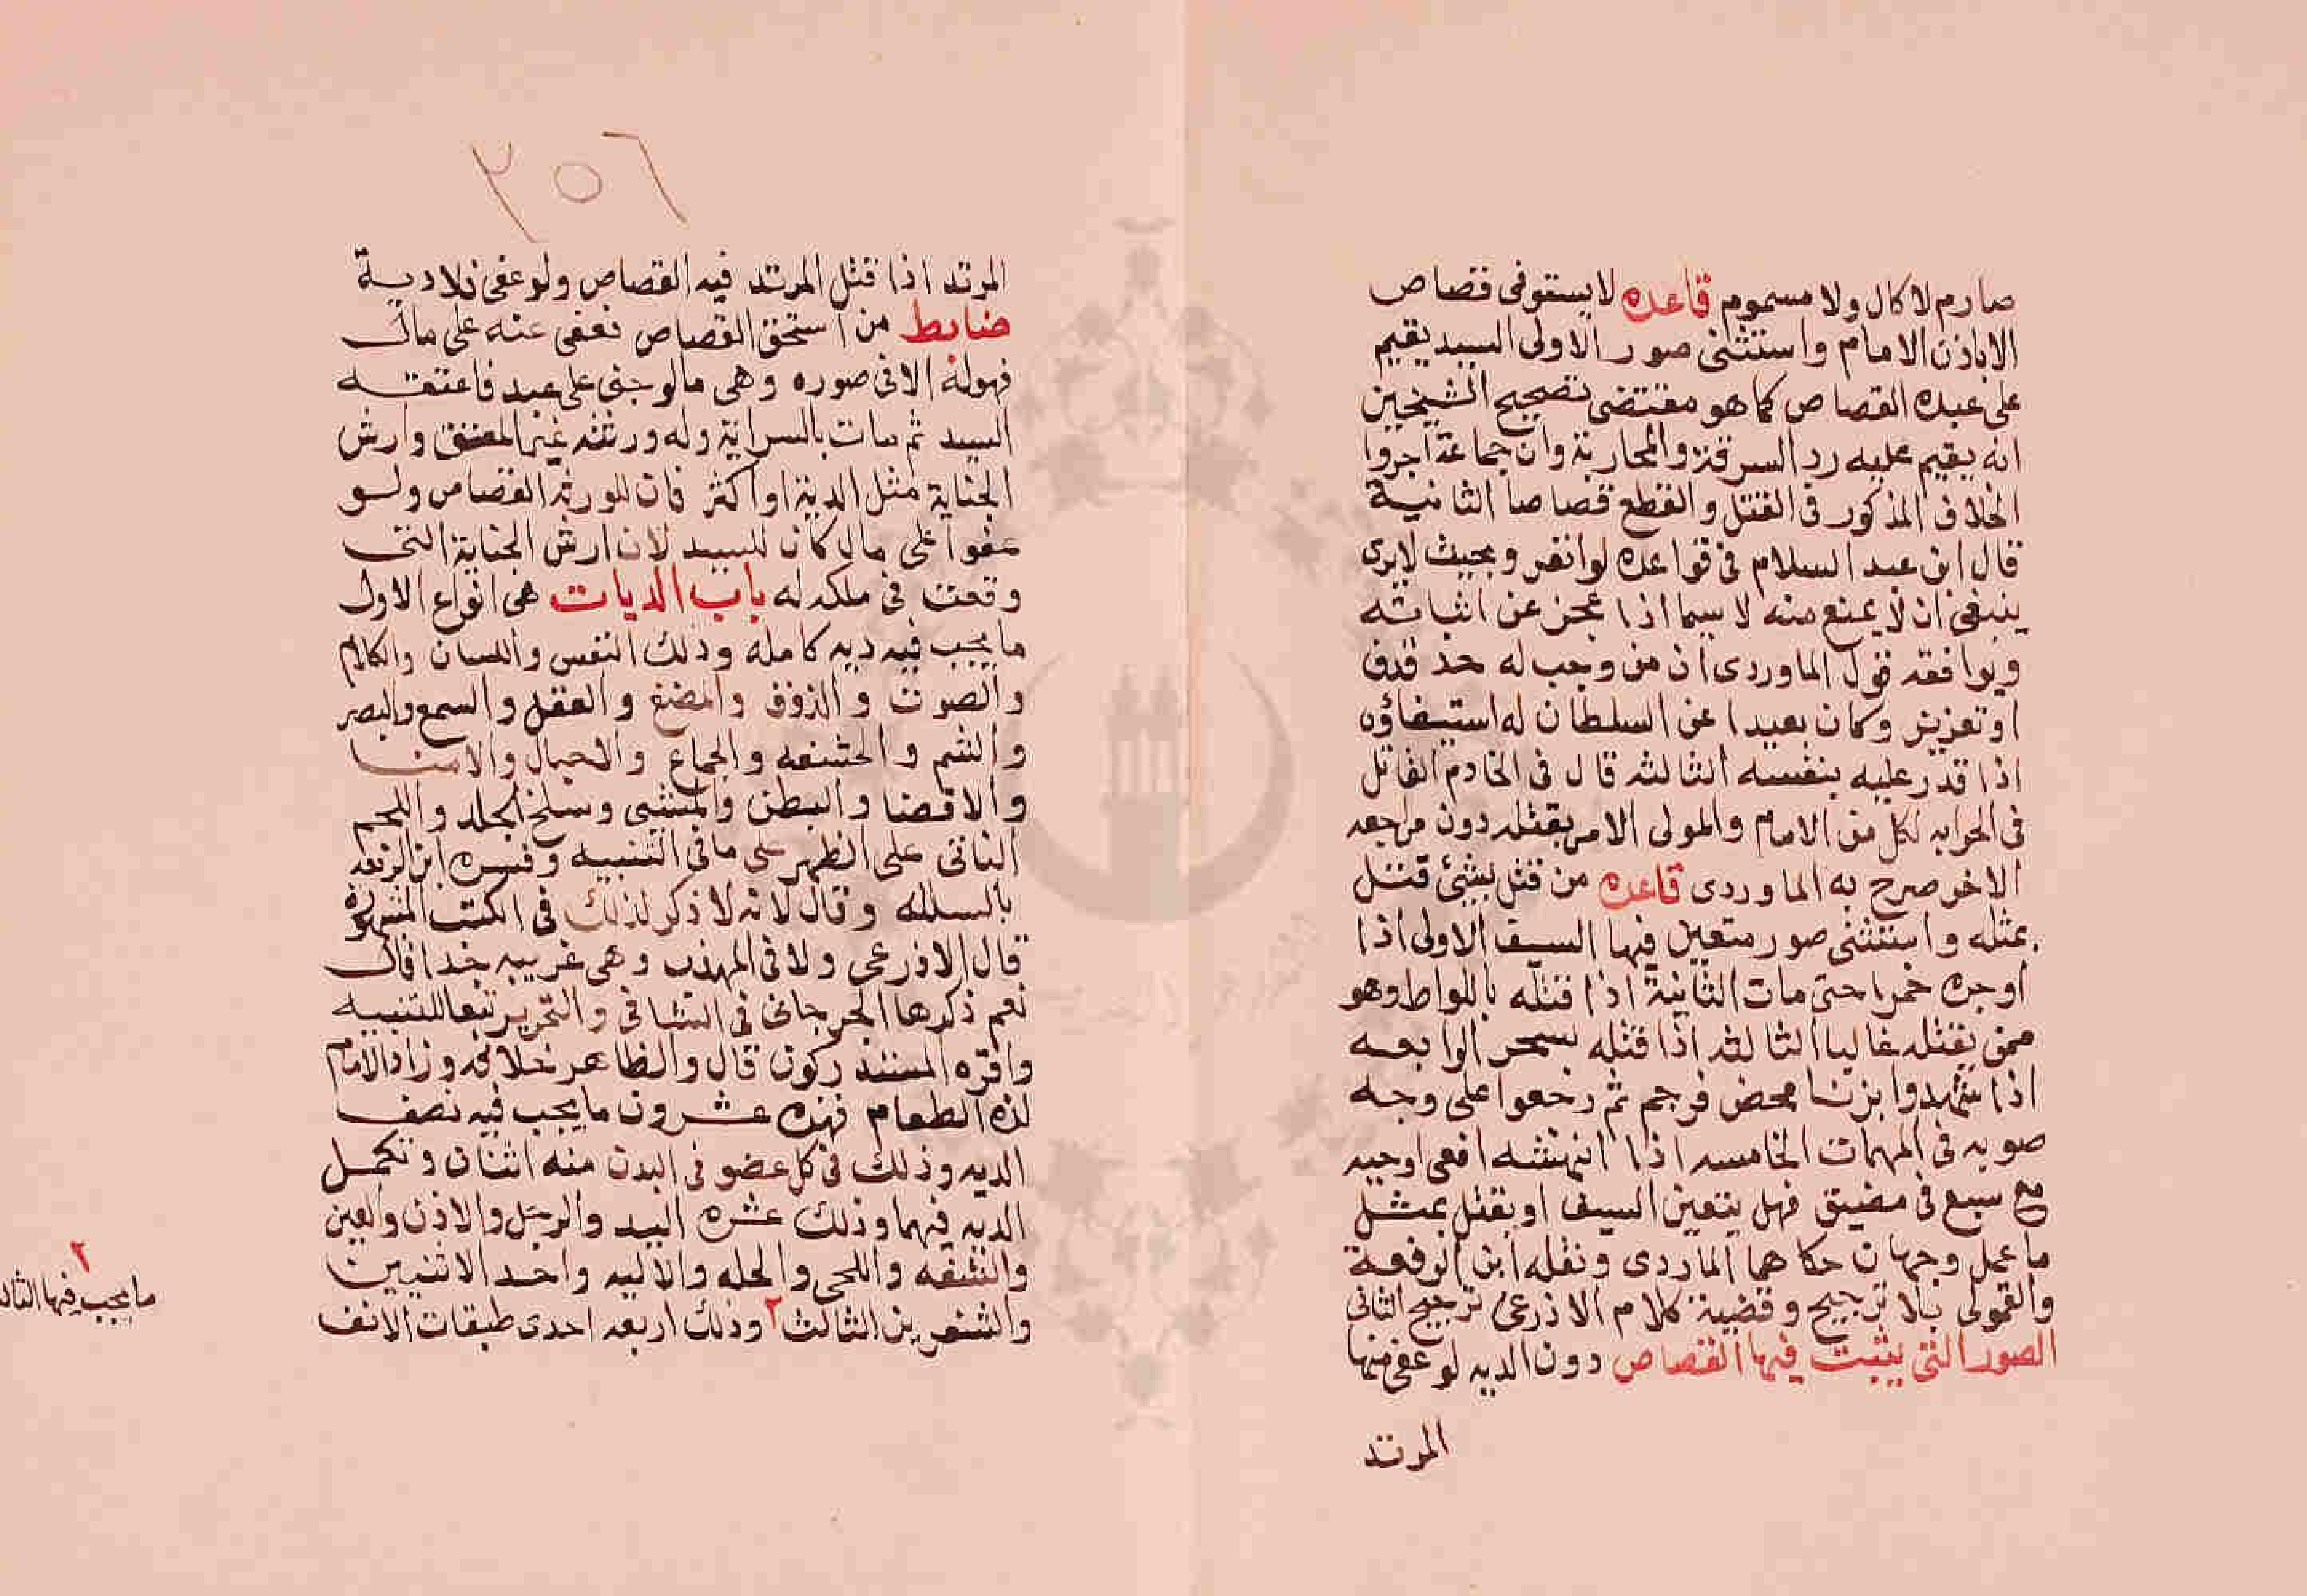 صارم لا كال ولا مسموم قاعده لا يستوفى قصاص
الا باذن الامام واستثنى صور الاولى السيد يقيم
على عبده القصاص كما هو مقتضى تصحيح الشيخين
انه يقيم عليه رد السرقة والمحاربة وان جماعة اجروا
الخلاف المذكور فى القتل والقطع قصاصا الثانية
قال ابن عبد السلام فى قواعده لو انفرد بحيث لا يرى
ينبغى ان لا يمنع منه لا سيما اذا عجز عن اثباته
ويوافقه قول الماوردى ان من وجب له حد قذف
او تعزير وكان بعيدا عن السلطان له استيفاؤه
اذا قدر عليه بنفسه الثالثه قال فى الخادم القاتل
فى الحرابه لكل من الامام والمولى الامر بقتله دون مراجعه
الاخر صرح به الماوردى قاعده من قتل بشئ قتل
بمثله واستثنى صور متعين فيها السيف الاولى اذا
اوجره خمرا حتى مات الثانية اذا قتله باللواط وهو
ممن يقتله غالبا الثالثه اذا قتله بسحر الرابعه
اذا شهدوا بزنا محض فرجم ثم رجعوا على وجه
صوبه فى المهمات الخامسه اذا انهشه افعى او حبسه
مع سبع فى مضيق فهل يتعين السيف او يقتل بمثل
ما عمل وجهان حكاهما الماردى ونقله ابن الرفعة
والقمولى بلا ترجيح وقضية كلام الاذرعى ترجيح الثانى
الصور التى يثبت فيها القصاص دون الديه لو عفى منها
المرتد
٣٥٦
المرتد اذا قتل المرتد فيه القصاص ولو عفى فلا دية
ضابط من استحق القصاص فعفى عنه على مال
فهو له الا فى صوره وهى ما لو جنى على عبد فاعتقه
السيد ثم مات بالسراية وله ورثته غير المعتق وارش
الجناية مثل الدية او اكثر فان للورثه القصاص ولو
عفوا على مال كان للسيد لان ارش الجناية التى
وقعت فى ملكه له باب الديات هى انواع الاول
ما يجب فيه ديه كامله وذلك النفس واللسان والكلام
والصوت والذوق والمضغ والعقل والسمع والبصر
والشم والحشفه والجماع والاحبال والامنا
والاقضا والبطن والمشى وسلخ الجلد واللحم
الناتى على الظهر على ما فى التنبيه وفسره ابن الرفعه
بالسلسله وقال لانه لا ذكر لذلك فى الكتب المشهورة
قال الاذرعى ولا فى المهذب وهى غريبه جدا قال
نعم ذكرها الجرجانى فى الشافى والتحرير تبعا للتنبيه
واقره المستدركون قال والظاهر خلافه وزاد الامام
لذه الطعام فهذه عشرون ما يجب فيه نصف
الديه وذلك فى كل عضو فى البدن منه اثنان وتكمل
الديه فيهما وذلك عشره اليد والرجل والاذن والعين
والشفه واللحى والحلمه والاليه واحد الانثيين
والشفرين الثالث ٢ وذلك اربعه احدى طبقات الانف
٢
ما يجب فيها